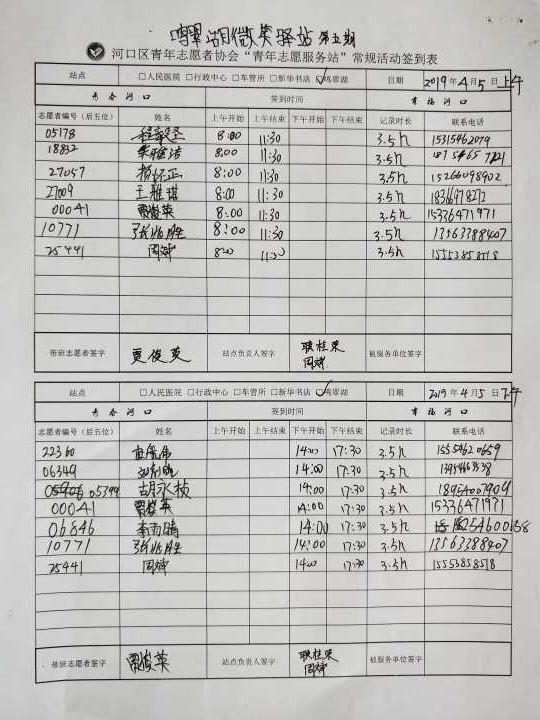 鸣翠湖微笑驿站 第五期
河口区青年志愿者协会“青年志愿服务站”常规活动签到表
站点 □人民医院 □行政中心 □车管所 □新华书店 ☑鸣翠湖 日期 2019年4月5日上午
青春河口 签到时间 幸福河口
志愿者编号（后五位） 姓名 上午开始 上午结束 下午开始 下午结束 记录时长 联系电话
05178 8:00 11:30 3.5h 15315462079
18832 8:00 11:30 3.5h
27057 杨怀正 8:00 11:30 3.5h 15266098902
27009 王雅琪 8:00 11:30 3.5h 18366978272
00041 贾俊英 8:00 11:30 3.5h 15336471971
10771 张兆胜 8:00 11:30 3.5h 13563388407
25441 周斌 8:00 11:30 3.5h 15553858518
带班志愿者签字 贾俊英 站点负责人签字 耿桂荣 被服务单位签字
周斌
站点 □人民医院 □行政中心 □车管所 □新华书店 ☑鸣翠湖 日期 2019年4月5日下午
青春河口 签到时间 幸福河口
志愿者编号（后五位） 姓名 上午开始 上午结束 下午开始 下午结束 记录时长 联系电话
22360 14:00 17:30 3.5h 15554620659
06349 14:00 17:30 3.5h
05799 胡永桢 14:00 17:30 3.5h 18954007909
00041 贾俊英 14:00 17:30 3.5h 15336471971
06846 李雨晴 14:00 17:30 3.5h
10771 张兆胜 14:00 17:30 3.5h 13563388407
25441 周斌 14:00 17:30 3.5h 15553858518
带班志愿者签字 贾俊英 站点负责人签字 耿桂荣 被服务单位签字
周斌